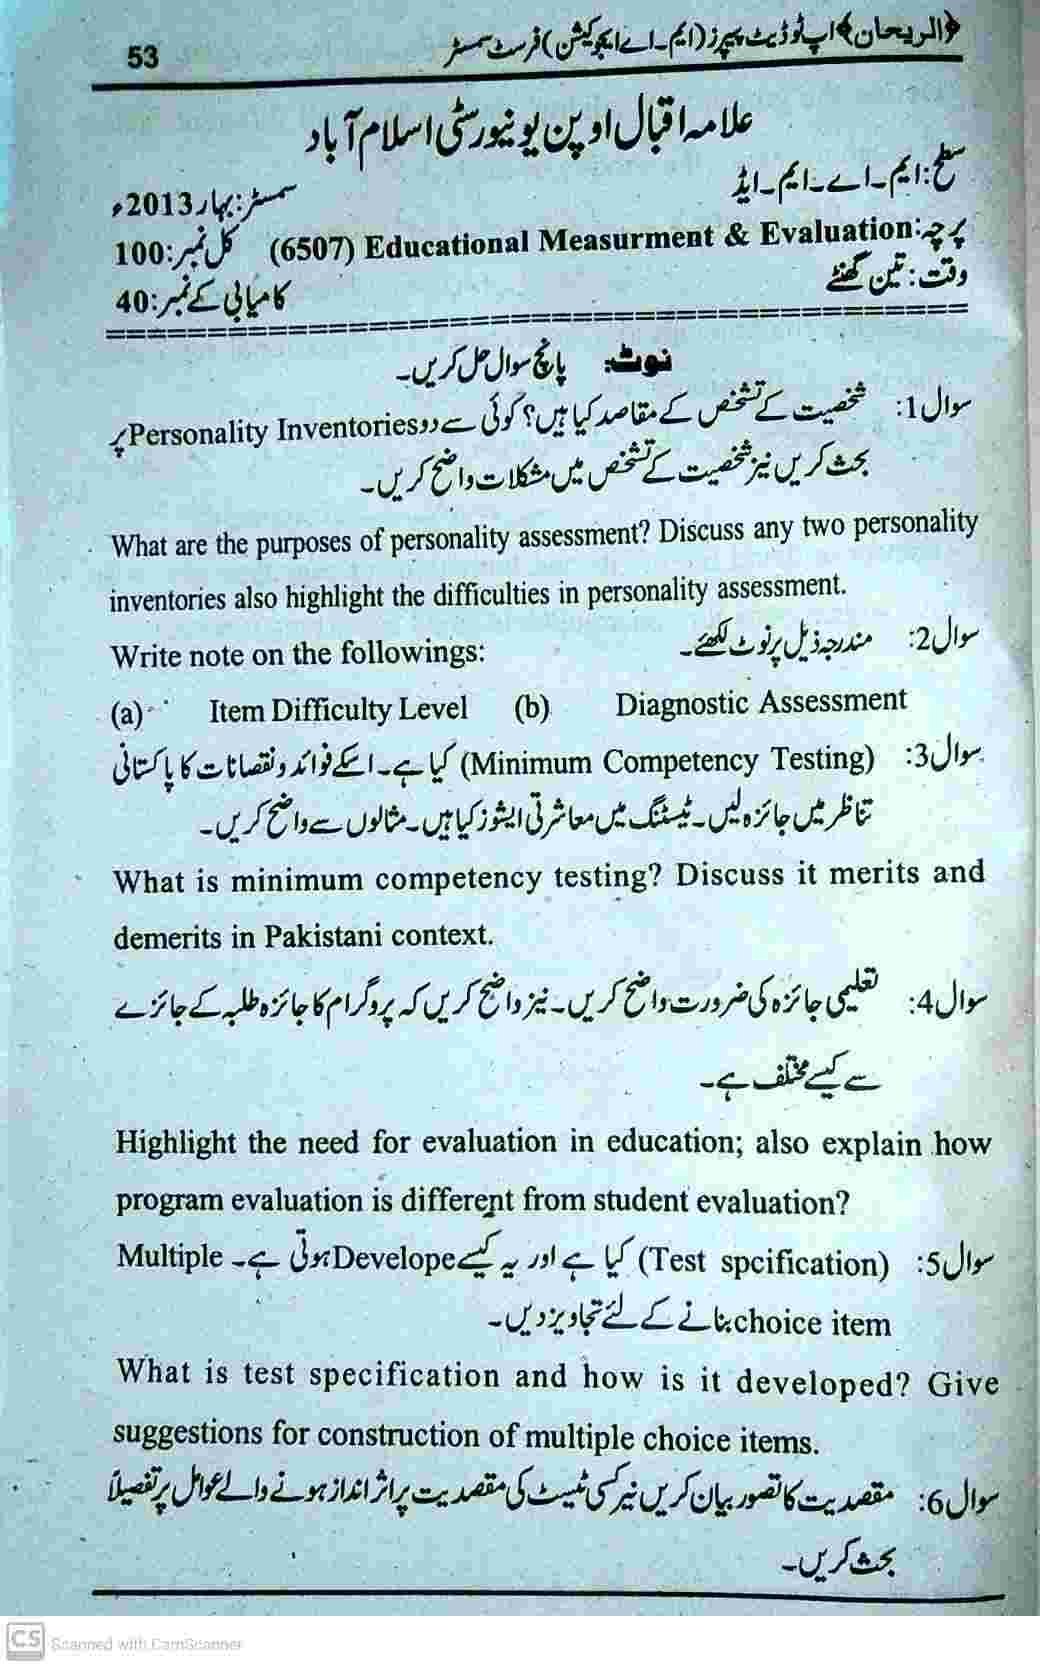 ﴿الریحان﴾ اپ ٹو ڈیٹ پیپرز (ایم۔اے ایجوکیشن) فرسٹ سمسٹر 53
علامہ اقبال اوپن یونیورسٹی اسلام آباد
سطح: ایم۔اے۔ایم۔ایڈ سمسٹر: بہار 2013ء
پرچہ: Educational Measurment & Evaluation (6507) کل نمبر: 100
وقت: تین گھنٹے کامیابی کے نمبر: 40
نوٹ: پانچ سوال حل کریں۔
سوال 1: شخصیت کے تشخص کے مقاصد کیا ہیں؟ کوئی سے دو Personality Inventories پر
بحث کریں نیز شخصیت کے تشخص میں مشکلات واضح کریں۔
What are the purposes of personality assessment? Discuss any two personality
inventories also highlight the difficulties in personality assessment.
سوال 2: مندرجہ ذیل پر نوٹ لکھئے۔ Write note on the followings:
(a) Item Difficulty Level (b) Diagnostic Assessment
سوال 3: (Minimum Competency Testing) کیا ہے۔ اسکے فوائد و نقصانات کا پاکستانی
تناظر میں جائزہ لیں۔ ٹیسٹنگ میں معاشرتی ایشوز کیا ہیں۔ مثالوں سے واضح کریں۔
What is minimum competency testing? Discuss it merits and
demerits in Pakistani context.
سوال 4: تعلیمی جائزہ کی ضرورت واضح کریں۔ نیز واضح کریں کہ پروگرام کا جائزہ طلبہ کے جائزے
سے کیسے مختلف ہے۔
Highlight the need for evaluation in education; also explain how
program evaluation is different from student evaluation?
سوال 5: (Test spcification) کیا ہے اور یہ کیسے Develope ہوتی ہے۔ Multiple
choice item بنانے کے لئے تجاویز دیں۔
What is test specification and how is it developed? Give
suggestions for construction of multiple choice items.
سوال 6: مقصدیت کا تصور بیان کریں نیز کسی ٹیسٹ کی مقصدیت پر اثر انداز ہونے والے عوامل پر تفصیلاً
بحث کریں۔
CS Scanned with CamScanner